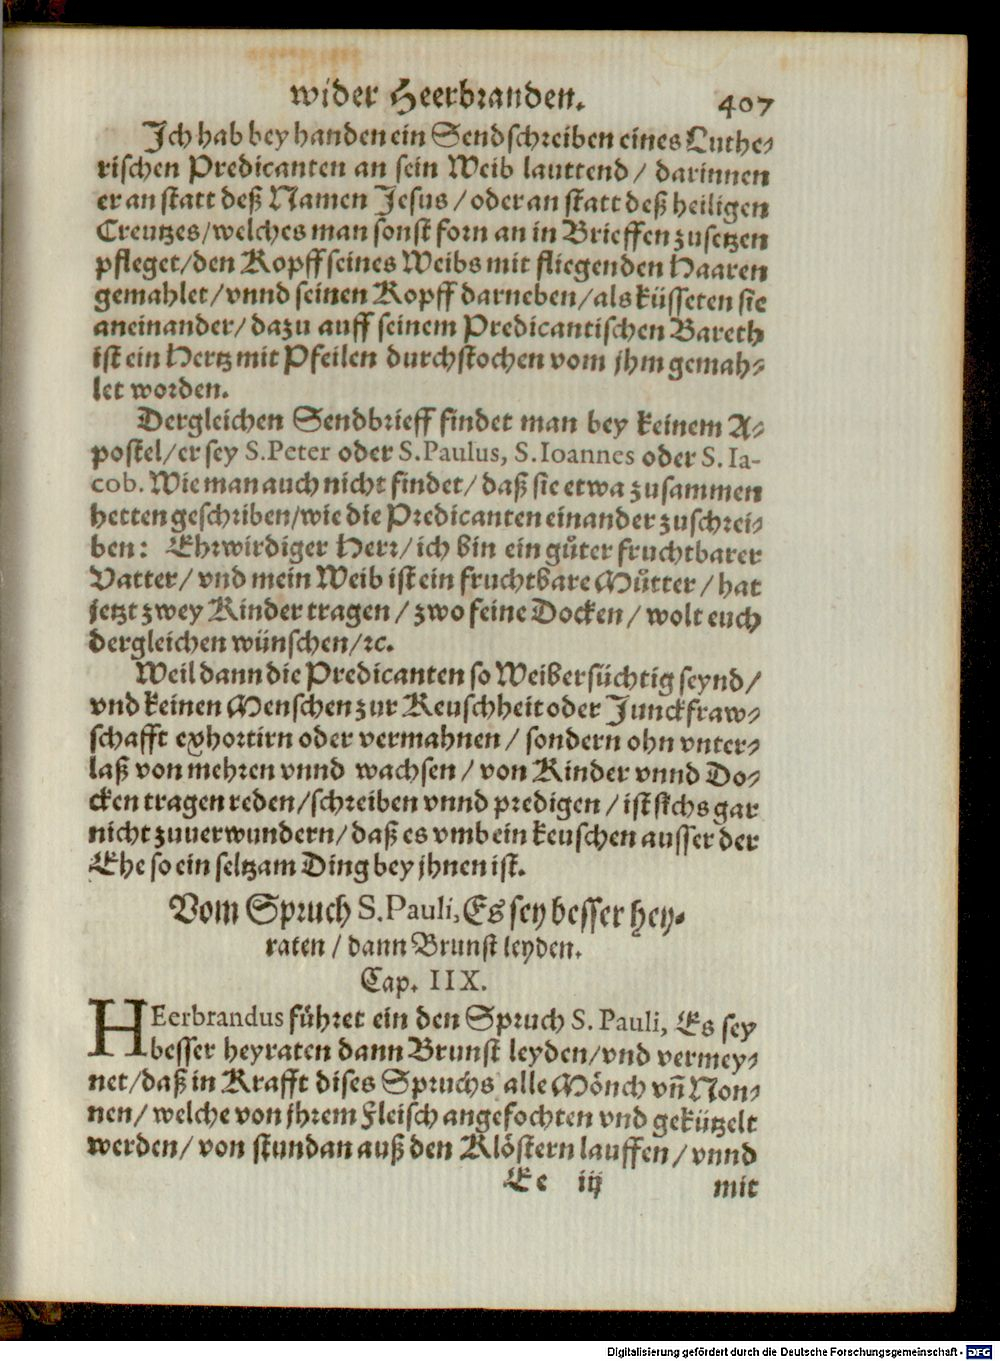 wider Heerbranden. 407
Ich hab bey handen ein Sendschreiben eines Luthe-
rischen Predicanten an sein Weib lauttend / darinnen
er an statt deß Namen Jesus / oder an statt deß heiligen
Creutzes/welches man sonst forn an in Brieffen zusetzen
pfleget/den Kopff seines Weibs mit fliegenden Haaren
gemahlet/vnnd seinen Kopff darneben/als küsseten sie
aneinander/dazu auff seinem Predicantischen Bareth
ist ein Hertz mit Pfeilen durchstochen vom jhm gemah-
let worden.
Dergleichen Sendbrieff findet man bey keinem A-
postel/er sey S.Peter oder S.Paulus, S.Ioannes oder S. Ia-
cob. Wie man auch nicht findet/daß sie etwa zusammen
hetten geschriben/wie die Predicanten einander zuschrei-
ben: Ehrwirdiger Herr/ich bin ein gůter fruchtbarer
Vatter/vnd mein Weib ist ein fruchtbare Můtter/hat
jetzt zwey Kinder tragen / zwo feine Docken / wolt euch
dergleichen wünschen/ꝛc.
Weil dann die Predicanten so Weibersüchtig seynd/
vnd keinen Menschen zur Keuschheit oder Junckfraw-
schafft exhortirn oder vermahnen / sondern ohn vnter-
laß von mehren vnnd wachsen / von Kinder vnnd Do-
cken tragen reden/schreiben vnnd predigen / ist sichs gar
nicht zuuerwundern/daß es vmb ein keuschen ausser der
Ehe so ein seltzam Ding bey jhnen ist.
Vom Spruch S.Pauli, Es sey besser hey-
raten / dann Brunst leyden.
Cap. IIX.
HEerbrandus führet ein den Spruch S. Pauli, Es sey
besser heyraten dann Brunst leyden/vnd vermey-
net/daß in Krafft dises Spruchs alle Mönch vñ Non-
nen/ welche von jhrem Fleisch angefochten vnd gekützelt
werden/ von stundan auß den Klöstern lauffen / vnnd
Ee iij mit
Digitalisierung gefördert durch die Deutsche Forschungsgemeinschaft - DFG